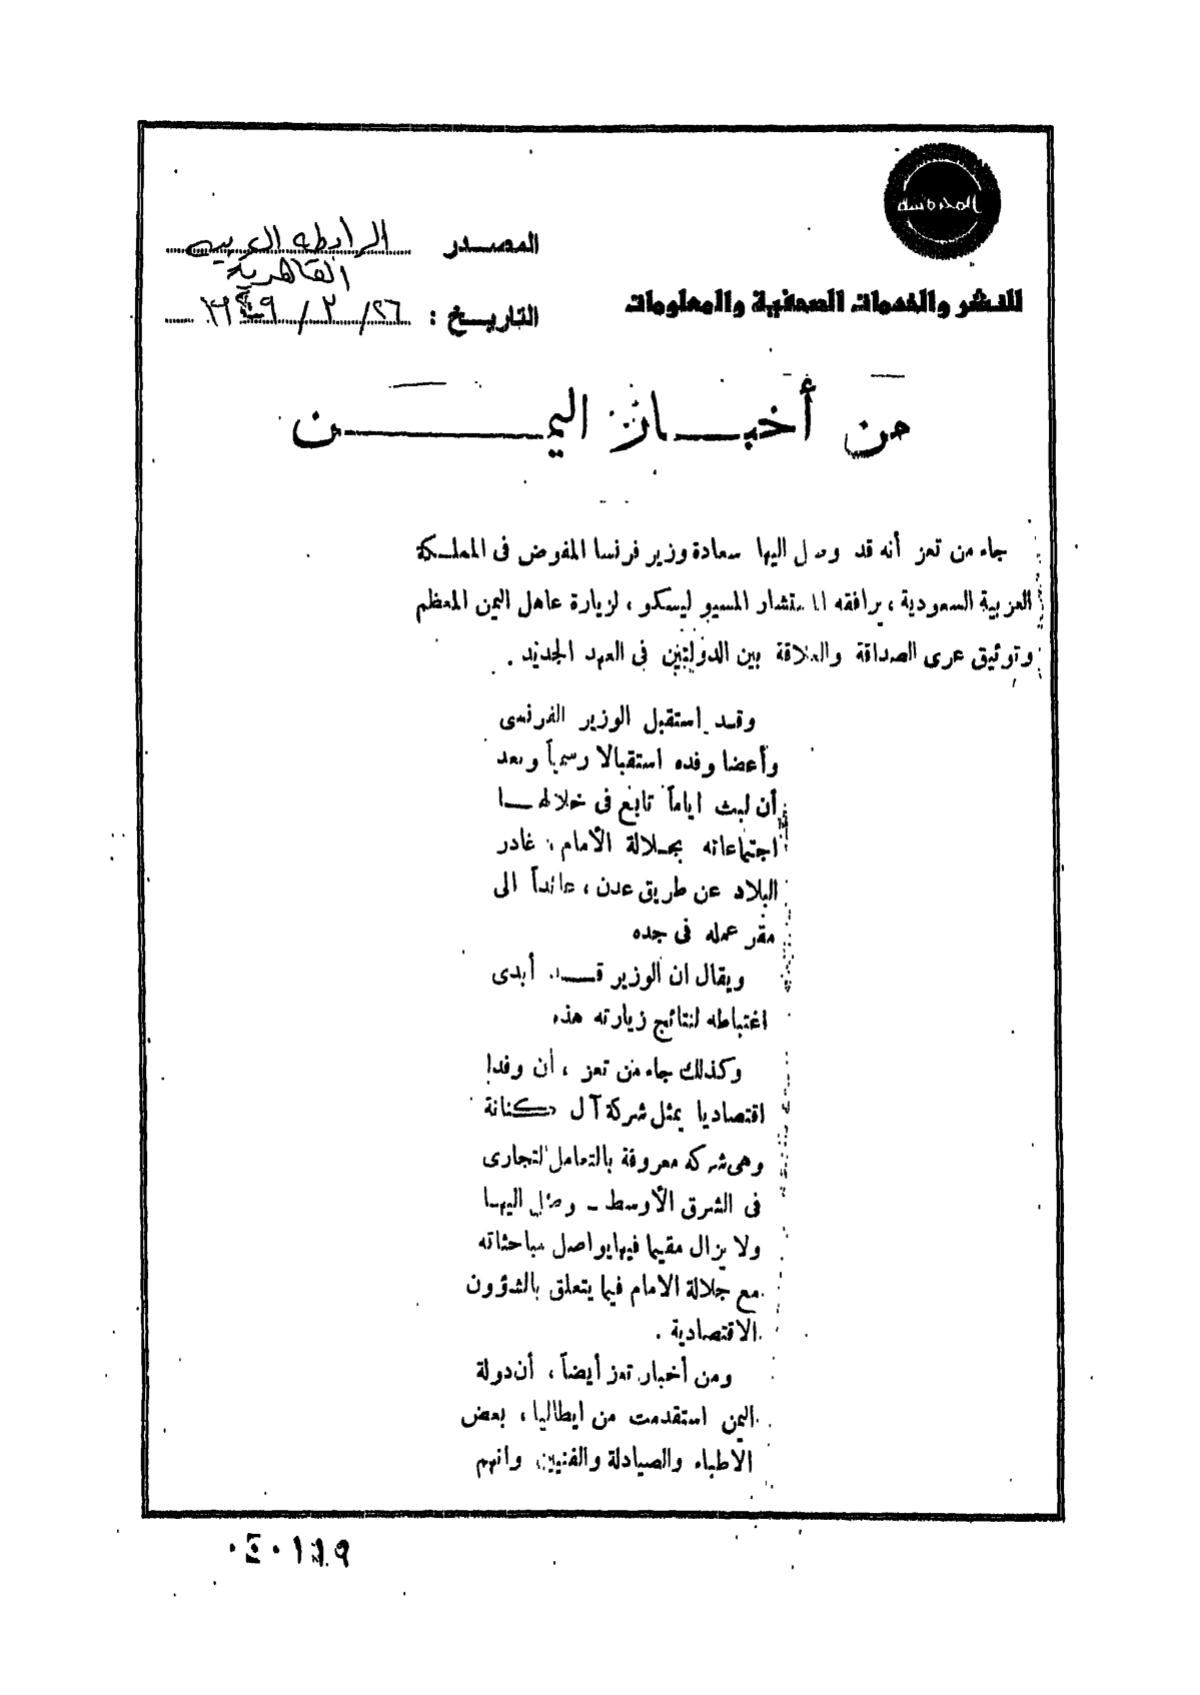 المحروسة
للنشر والخدمات الصحفية والمعلومات
المصدر الرابطه العربيه
القاهرية
التاريخ : ٢٦/ ٢ / ١٩٤٩
من أخبار اليمن
جاء من تعز أنه قد وصل اليها سعادة وزير فرنسا المفوض فى المملكة
العربية السعودية ، يرافقه المستشار المسيو ليسكو ، لزيارة عاهل اليمن المعظم
وتوثيق عرى الصداقة والعلاقة بين الدولتين فى العهد الجديد .
وقد استقبل الوزير الفرنسى
وأعضا وفده استقبالا رسمياً وبعد
أن لبث اياماً تابع فى خلالها
اجتماعاته بجلالة الأمام ، غادر
البلاد عن طريق عدن ، عائداً الى
مقر عمله فى جده
ويقال ان الوزير قد أبدى
اغتباطه لنتائج زيارته هذه
وكذلك جاء من تعز ، أن وفدا
اقتصاديا يمثل شركة آل كنانة
وهى شركه معروفة بالتعامل التجارى
فى الشرق الأوسط ـ وصل اليها
ولا يزال مقيما فيها يواصل مباحثاته
مع جلالة الامام فيما يتعلق بالشؤون
الاقتصادية .
ومن أخبار تعز أيضاً ، أن دولة
اليمن استقدمت من ايطاليا ، بعض
الاطباء والصيادلة والفنيين وانهم